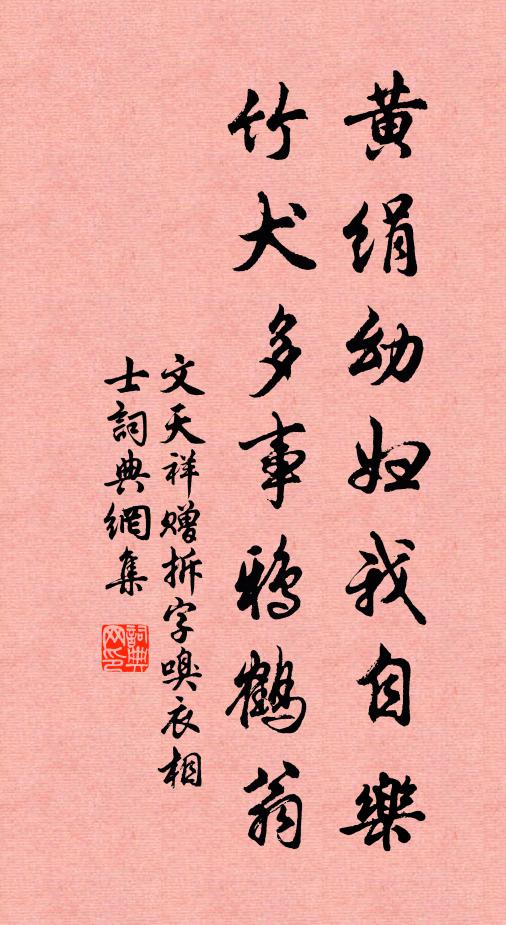 黄绢幼妇我自樂
竹犬多事鸦鶴翁
文天祥赠拆字嗅衣相
士詞典網集
詞典
网印